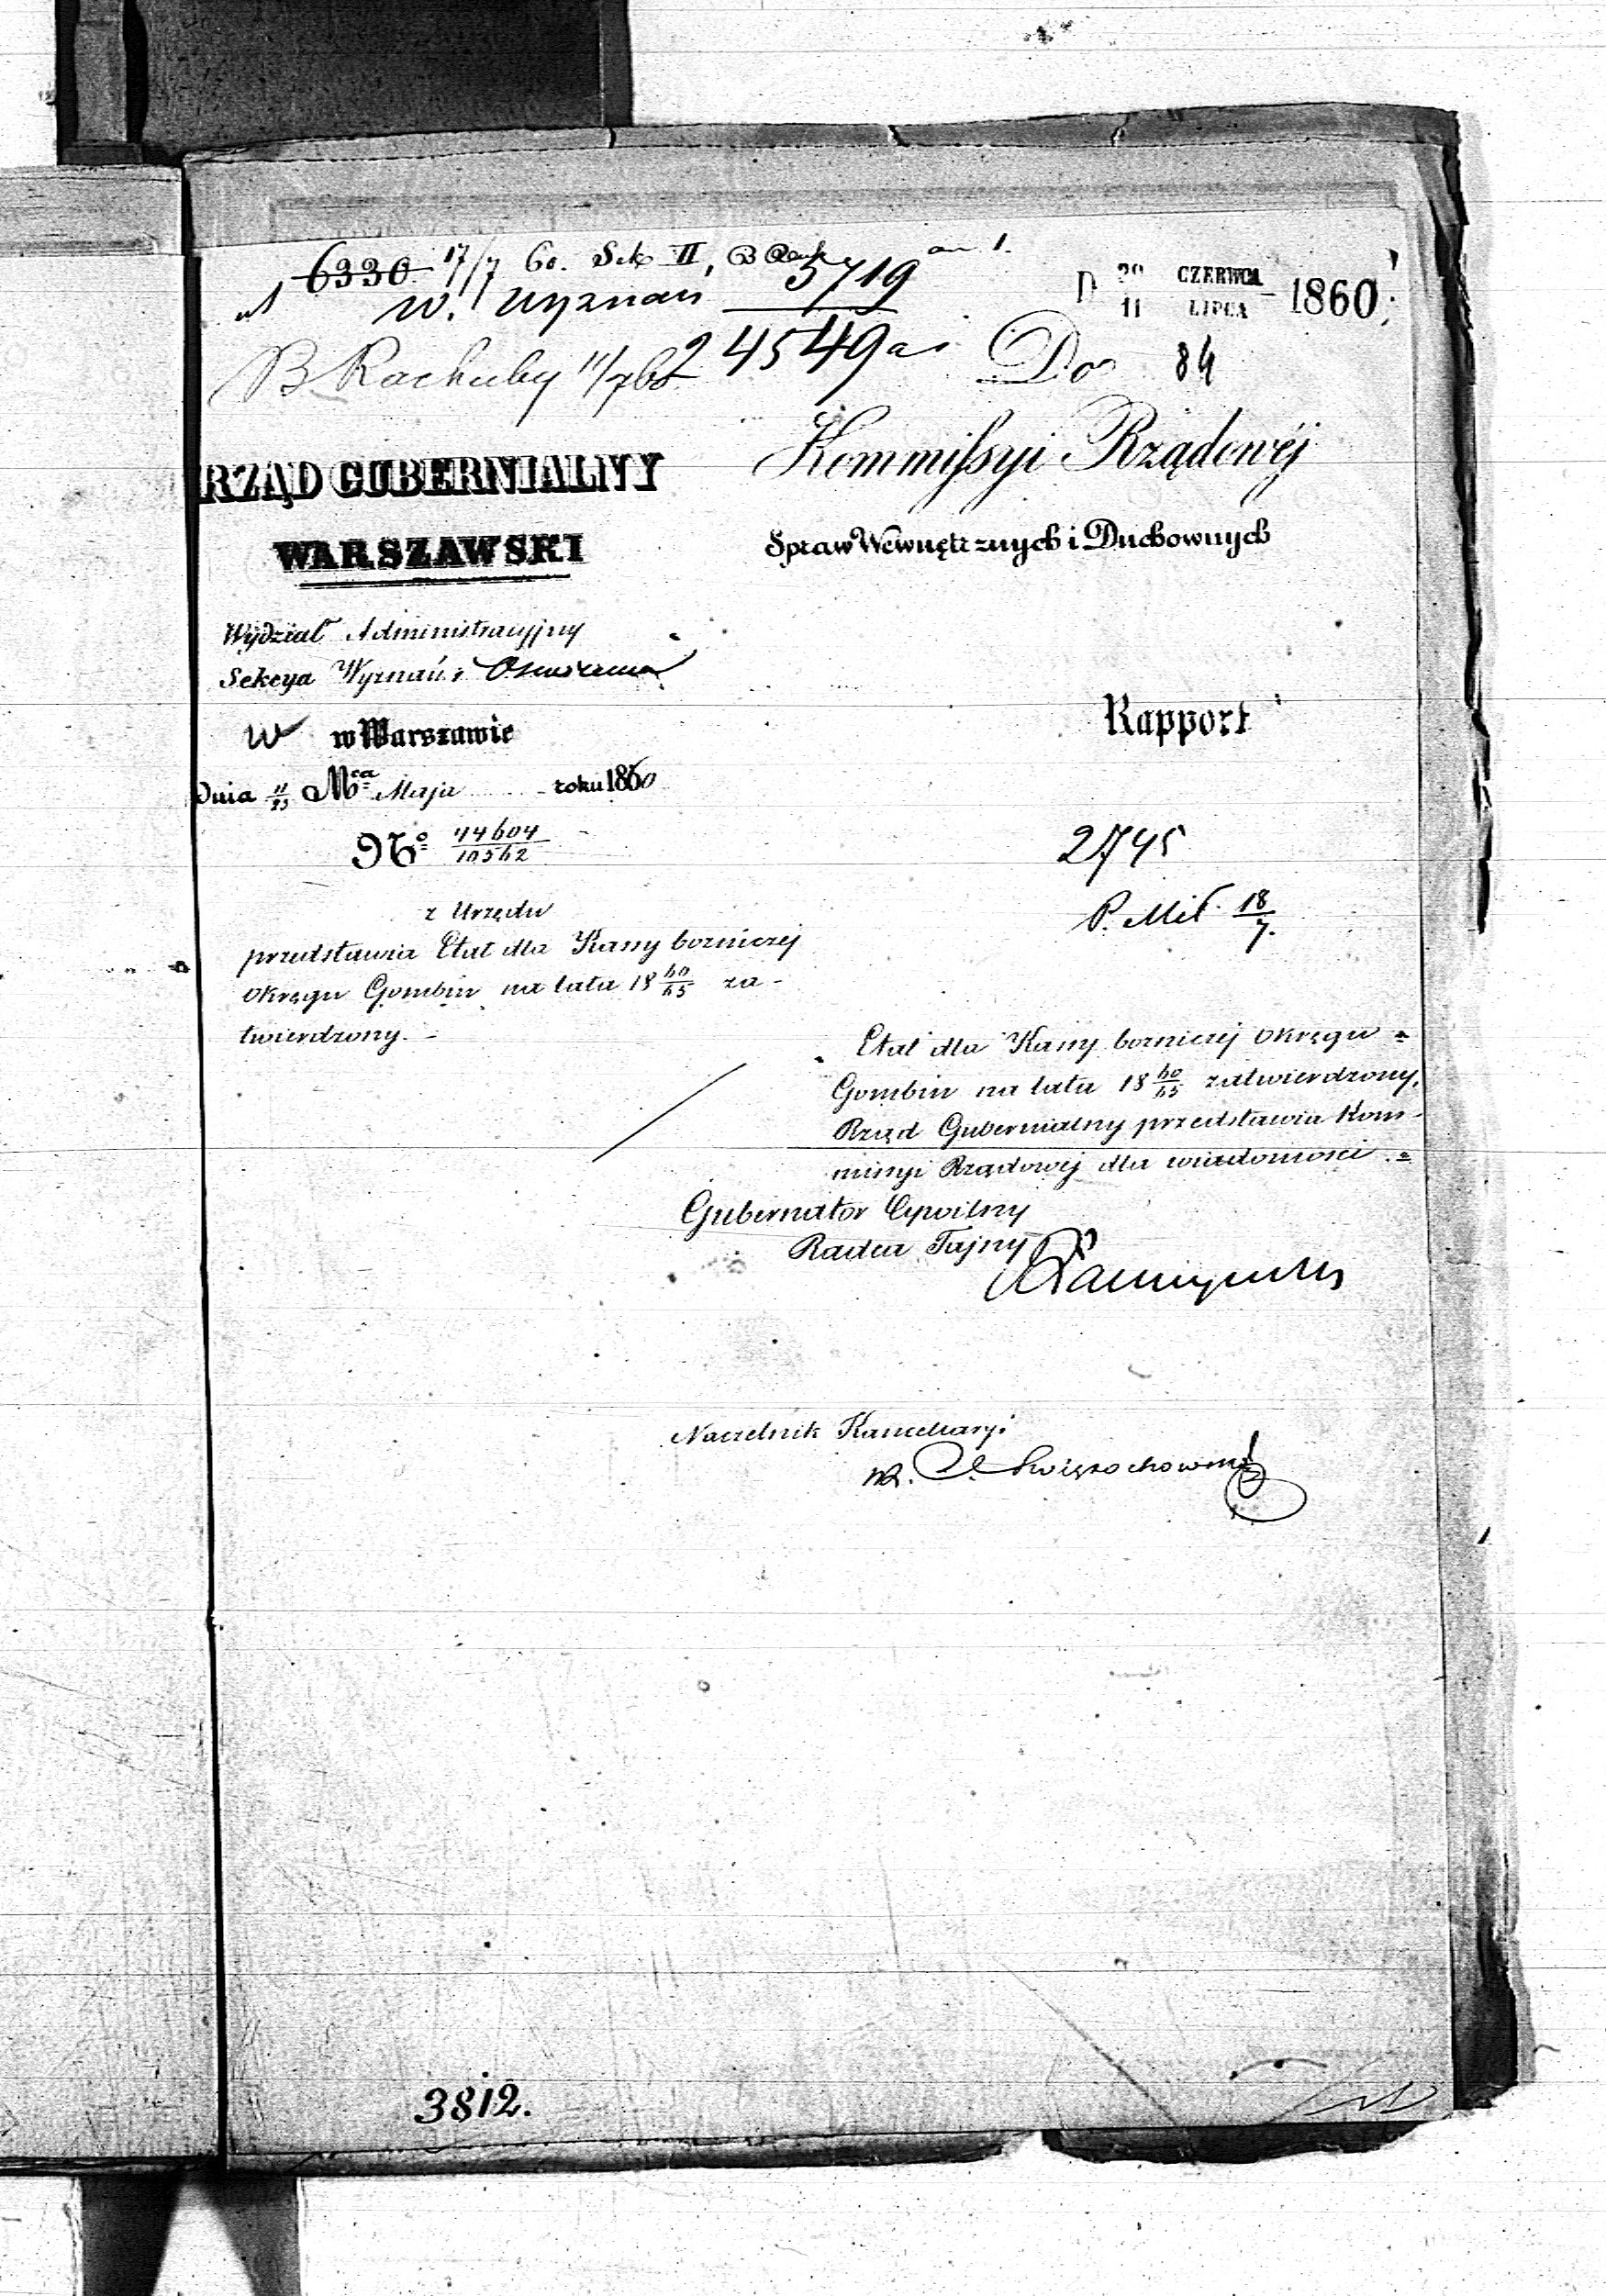 6330 17/7 60. Sek II, B
5719
W. Wyznań
B Rachuby 11/7 60
4549
D 29/11 CZERWCA/LIPCA 1860
Do 84
Kommissyi Rządowéj
Spraw Wewnętrznych i Duchownych
RZĄD GUBERNIALNY
WARSZAWSKI
Wydział Administracyjny
Sekcya Wyznań i Oswiecenia
w Warszawie
Dnia 11/23 Mca Maja roku 1860
No 44604/10562
Rapport
2745
P. Mił. 18/7.
z Urzędu
przedstawia Etat dla Kassy bożniczej
Okręgu Gombin na lata 18 60/65 za-
twierdzony. -
Etat dla Kassy bożniczej Okręgu
Gombin na lata 18 60/65 zatwierdzony,
Rząd Gubernialny przedstawia Kom-
missyi Rządowej dla wiadomosci.
Gubernator Cywilny
Radca Tajny
Naczelnik Kancellaryi
3812.